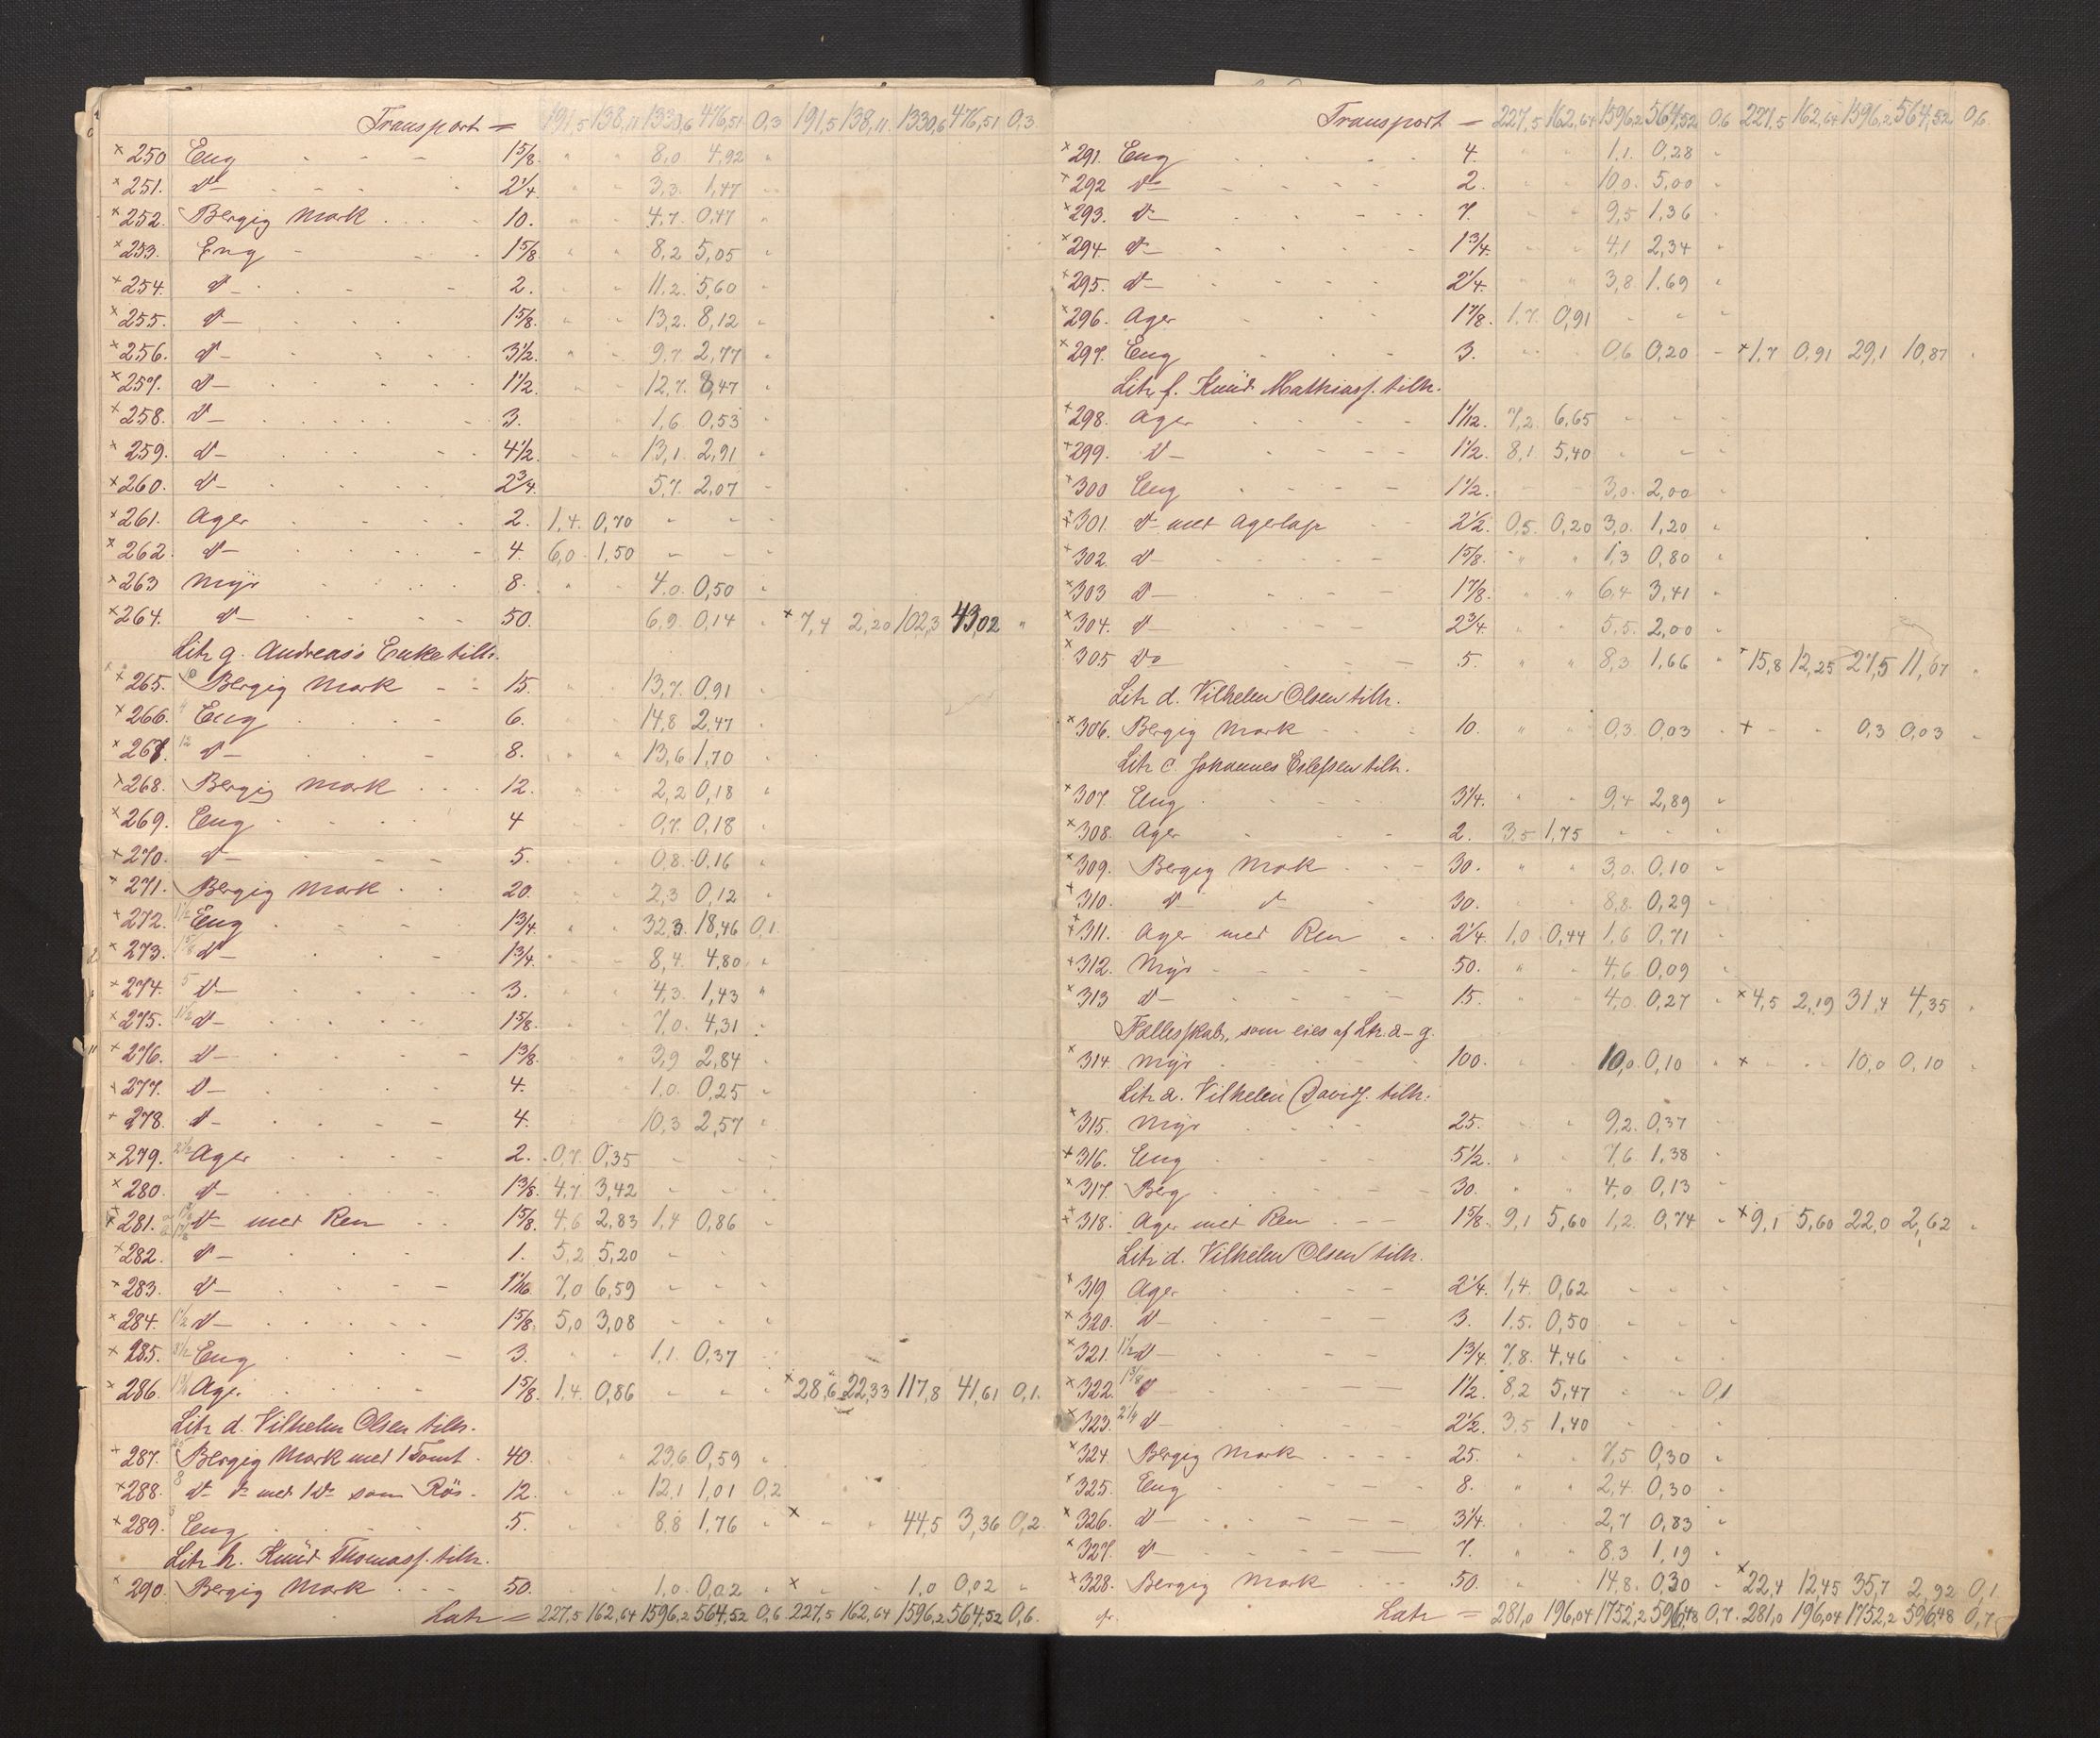 Transport = 191,5 138,11 1330,6 476,51 0,3 191,5 138,11 1330,6 476,51 0,3.
× 250 Eng - - - 1 5/8. " " 8,0 4,92 "
× 251. d⁰ - - - 2 1/4. " " 3,3. 1,47 "
× 252. Bergig Mark . . - 10. " " 4,7. 0,47 "
× 253. Eng - - - 1 5/8 " " 8,2 5,05 "
× 254. d⁰ - - - 2. " " 11,2. 5,60 "
× 255. d⁰ - - - 1 5/8. " " 13,2. 8,12 "
× 256. d⁰ - - - 3 1/2. " " 9,7. 2,77 "
× 257. d⁰ - - - 1 1/2. " " 12,7. 8,47 "
× 258. d⁰ - - - 3. " " 1,6. 0,53 "
× 259. d⁰ - - - 4 1/2. " " 13,1. 2,91 "
× 260. d⁰ - - - 2 3/4. " " 5,7. 2,07 "
× 261. Ager - - - 2. 1,4. 0,70 " " "
× 262. d⁰ - - - 4. 6,0. 1,50 " " "
× 263 Myr - - - 8. " " 4,0. 0,50 "
× 264. d⁰ - - - 50. " " 6,9. 0,14 " × 7,4 2,20 102,3 43,02 "
Litr g. Andreas's Enke tilh.
× 265. 10 Bergig Mark - - 15. " " 13,7. 0,91 "
× 266. 4 Eng - - - 6. " " 14,8 2,47 "
× 267. 12 d⁰ - - - 8. " " 13,6 1,70 "
× 268. Bergig Mark . . . 12. " " 2,2 0,18 "
× 269. Eng - - - 4 " " 0,7. 0,18 "
× 270. d⁰ - - - 5. " " 0,8. 0,16 "
× 271. Bergig Mark . . 20. " " 2,3 0,12 "
× 272. 1 1/2 Eng - - - 1 3/4. " " 32,3. 18,46 0,1
× 273. 1 5/8 d⁰ - - - 1 3/4. " " 8,4. 4,80 "
× 274. 5 d⁰ - - - 3. " " 4,3. 1,43 "
× 275. 1 1/2 d⁰ - - - 1 5/8. " " 7,0. 4,31 "
× 276. d⁰ - - - 1 3/8. " " 3,9 2,84 "
× 277. d⁰ - - - 4. " " 1,0. 0,25 "
× 278. d⁰ - - - 4. " " 10,3 2,57 "
× 279. 2 1/2 Ager - - - 2. 0,7. 0,35 " " "
× 280. d⁰ - - - 1 3/8. 4,7. 3,42 " " "
× 281. d⁰ med Ren . . 1 5/8. 4,6 2,83 1,4 0,86 "
× 282. d⁰ - - - 1. 5,2 5,20 " "
× 283. d⁰ - - - 1 1/16. 7,0 6,59 " " "
× 284. 1 1/2 d⁰ - - - 1 5/8. 5,0 3,08 " " "
× 285. 3 1/2 Eng - - - 3. " " 1,1. 0,37 "
× 286. Ager - - - 1 5/8. 1,4. 0,86 " " " × 28,6 22,33 117,8 41,61 0,1.
Litr d. Vilhelm Olsen tilh.
× 287. Bergig Mark med 1 Tomt . 40. " " 23,6 0,59 "
× 288. 8 d⁰ d⁰ med 1 d⁰ som Rös . 12. " " 12,1 1,01 0,2
× 289. Eng - - - 5. " " 8,8 1,76 " × " " 44,5 3,36 0,2.
Litr h. Knud Thomass. tilh.
× 290. Bergig Mark . . - 50. " " 1,0. 0,02 " × " " 1,0 0,02 "
Latr = 227,5 162,64 1596,2 564,52 0,6 227,5 162,64 1596,2 564,52 0,6.
Transport = 227,5 162,64 1596,2 564,52 0,6 227,5 162,64 1596,2 564,52 0,6.
× 291. Eng - - - 4. " " 1,1. 0,28 "
× 292 d⁰ - - - 2. " " 10,0. 5,00 "
× 293. d⁰ - - - 7. " " 9,5 1,36 "
× 294. d⁰ - - - 1 3/4. " " 4,1 2,34 "
× 295. d⁰ - - - 2 1/4. " " 3,8 1,69 "
× 296. Ager - - - 1 7/8. 1,7. 0,91 " " "
× 297. Eng - - - 3. " " 0,6 0,20 " × 1,7 0,91 29,1 10,87 "
Litr f. Knud Mathiass. tilh.
× 298. Ager - - - 1 1/12. 7,2. 6,65 " " "
× 299. d⁰ - - - 1 1/2. 8,1. 5,40 " " "
× 300 Eng - - - 1 1/2. 3,0. 2,00 "
× 301. d⁰ med Agerlap - - 2 1/2. 0,5. 0,20 3,0. 1,20 "
× 302. d⁰ - - - 1 5/8. " " 1,3 0,80 "
× 303 d⁰ - - - 1 7/8. " " 6,4 3,41 "
× 304. d⁰ - - - 2 3/4. " " 5,5. 2,00 "
× 305 do - - - 5. " " 8,3 1,66 " × 15,8 12,25 27,5 11,07 "
Litr d. Vilhelm Olsen tilh.
× 306. Bergig Mark - - - 10. " " 0,3 0,03 " × - - 0,3 0,03 "
Litr c. Johannes Erlefsen tilh.
× 307. Eng - - - 3 1/4. " " 9,4 2,89 "
× 308. Ager - - - 2. 3,5 1,75 " " "
× 309. Bergig Mark . . - 30. " " 3,0. 0,10 "
× 310. d⁰ d⁰ 30. " " 8,8. 0,29 "
× 311. Ager med Ren . . 2 1/4. 1,0 0,44 1,6 0,71 "
× 312. Myr - - - 50. " " 4,6 0,09 "
× 313 d⁰ - - - 15. " " 4,0. 0,27 " × 4,5 2,19 31,4 4,35 "
Fællesskab, som eies af Ltr. a-g.
× 314. Myr - - - 100. " " 10,0. 0,10 " × - - 10,0 0,10 "
Litr a. Vilhelm Davids. tilh.
× 315. Myr - - - 25. " " 9,2. 0,37 "
× 316. Eng - - - 5 1/2. " " 7,6. 1,38 "
× 317. Berg - - - 30. " " 4,0. 0,13 "
× 318. Ager med Ren - - - 1 5/8. 9,1 5,60 1,2. 0,74 " × 9,1 5,60 22,0 2,62 "
Litr d. Vilhelm Olsen tilh.
× 319. Ager - - - 2 1/4. 1,4. 0,62 " " "
× 320. d⁰ - - - 3. 1,5. 0,50 " " "
× 321. 1 1/2 d⁰ - - - 1 3/4. 7,8. 4,46 " "
× 322. 1 3/8 d⁰ - - - 1 1/2. 8,2 5,47 " " 0,1
× 323. 2 1/4 d⁰ - - - 2 1/2. 3,5 1,40 " "
× 324. Bergig Mark . . . 25. " " 7,5 0,30 "
× 325. Eng - - - 8. " " 2,4 0,30 "
× 326. d⁰ - - - 3 1/4. " " 2,7 0,83 "
× 327. d⁰ - - - 7. " " 8,3 1,19 "
× 328. Bergig Mark . . . 50. " " 14,8. 0,30 " × 22,4 12,45 35,7 2,92 0,1
Latr = 281,0 196,04 1752,2 596,48 0,7. 281,0 196,04 1752,2 596,48 0,7.